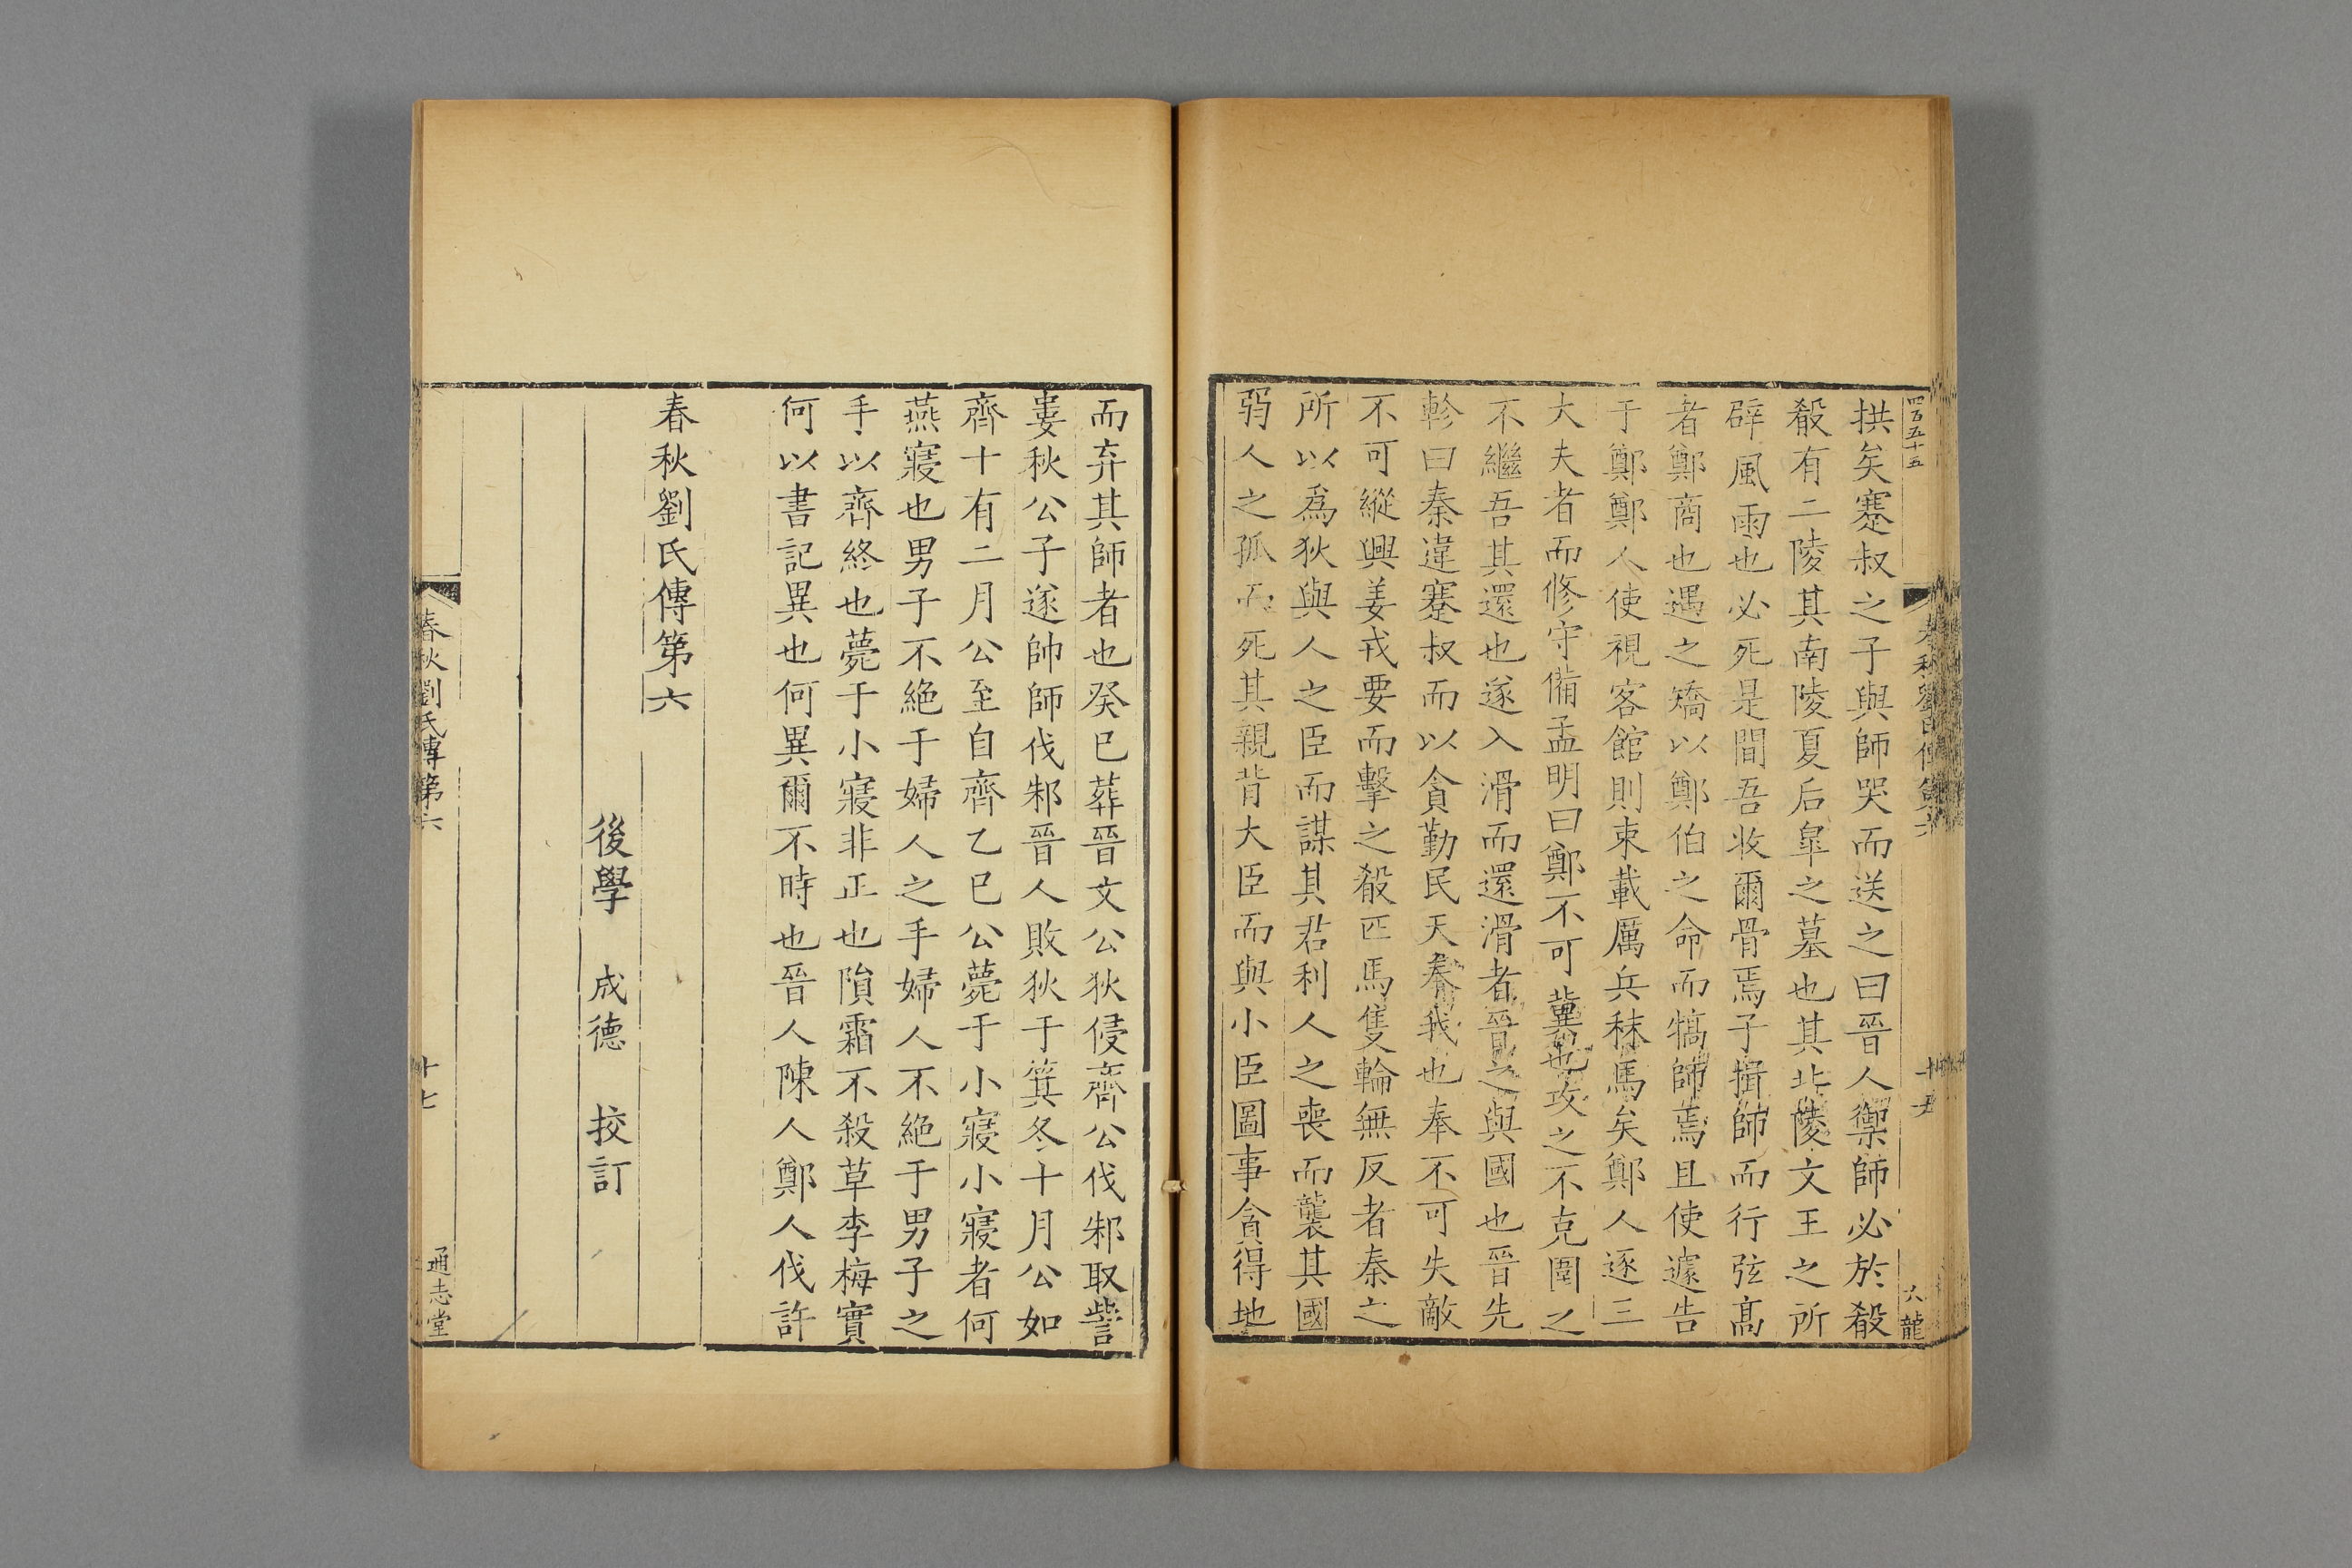 四百五十五
春秋劉氏傳第六
十五
六龍
拱矣蹇叔之子與師哭而送之曰晉人禦師必於殽
殽有二陵其南陵夏后臯之墓也其北陵文王之所
辟風雨也必死是間吾收爾骨焉子揖師而行弦髙
者鄭商也遇之矯以鄭伯之命而犒師焉且使遽告
于鄭鄭人使視客館則束載厲兵秣馬矣鄭人逐三
大夫者而修守備孟明曰鄭不可冀也攻之不克圍之
不繼吾其還也遂入滑而還滑者晉之與國也晉先
軫曰秦違蹇叔而以貪勤民天奉我也奉不可失敵
不可縱興姜戎要而擊之殽匹馬隻輪無反者秦之
所以爲狄與人之臣而謀其君利人之喪而襲其國
弱人之孤而死其親背大臣而與小臣圖事貪得地
而弃其師者也癸巳葬晉文公狄侵齊公伐邾取訾
婁秋公子遂帥師伐邾晉人敗狄于箕冬十月公如
齊十有二月公至自齊乙巳公薨于小寢小寢者何
燕寢也男子不絶于婦人之手婦人不絶于男子之
手以齊終也薨于小寢非正也隕霜不殺草李梅實
何以書記異也何異爾不時也晉人陳人鄭人伐許
春秋劉氏傳第六
後學 成德 挍訂
春秋劉氏傳第六
十七
通志堂